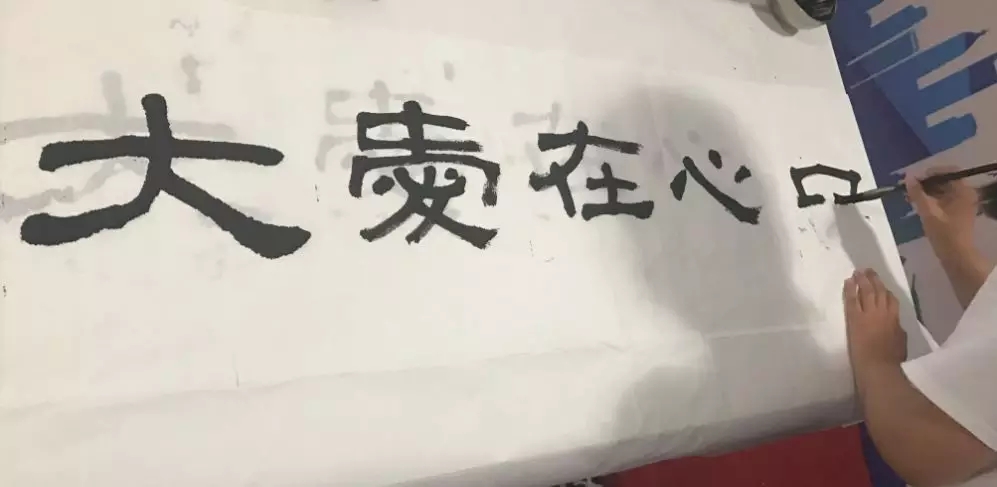 大愛在心口